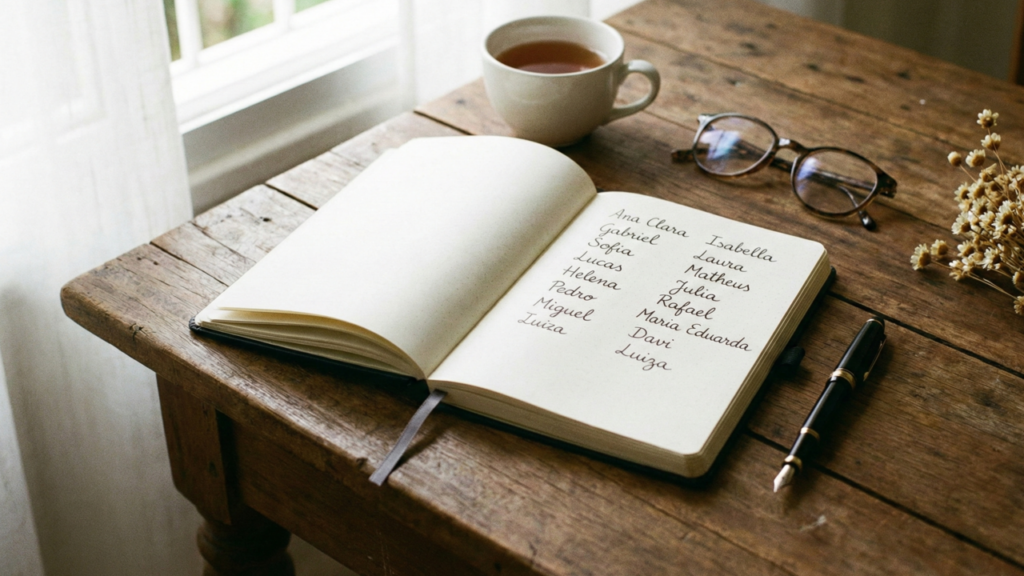 Ana Clara
Gabriel
Sofia
Lucas
Helena
Pedro
Miguel
Luiza
Isabella
Laura
Matheus
Julia
Rafael
Maria Eduarda
Davi
Luiza